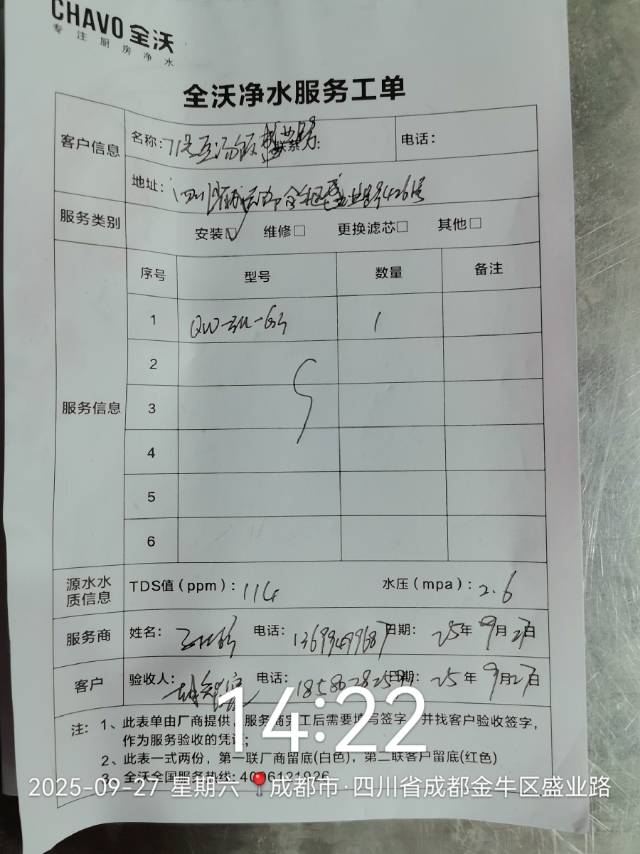 CHAVO 全沃
专注厨房净水
全沃净水服务工单
客户信息
名称：
联系
电话：
地址：四川 盛业路426号
服务类别
安装☑ 维修□ 更换滤芯□ 其他□
服务信息
序号 型号 数量 备注
1 1
2
3
4
5
6
源水水质信息
TDS值（ppm）：114 水压（mpa）：2.6
服务商 姓名： 电话：13699499687 日期：25年9月27日
客户 验收人： 电话： 日期：25年9月27日
14:22
注：1、此表单由厂商提供，服务商完工后需要填写签字，并找客户验收签字，
作为服务验收的凭证；
2、此表一式两份，第一联厂商留底(白色)，第二联客户留底(红色)
3、全沃全国服务热线:4006121926
2025-09-27 星期六 成都市·四川省成都金牛区盛业路